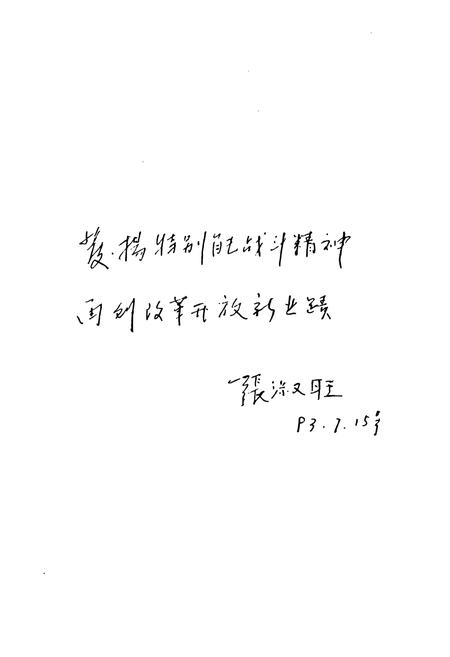 發揚特别能战斗精神
再创改革开放新业蹟
張淑旺
93.7.15号